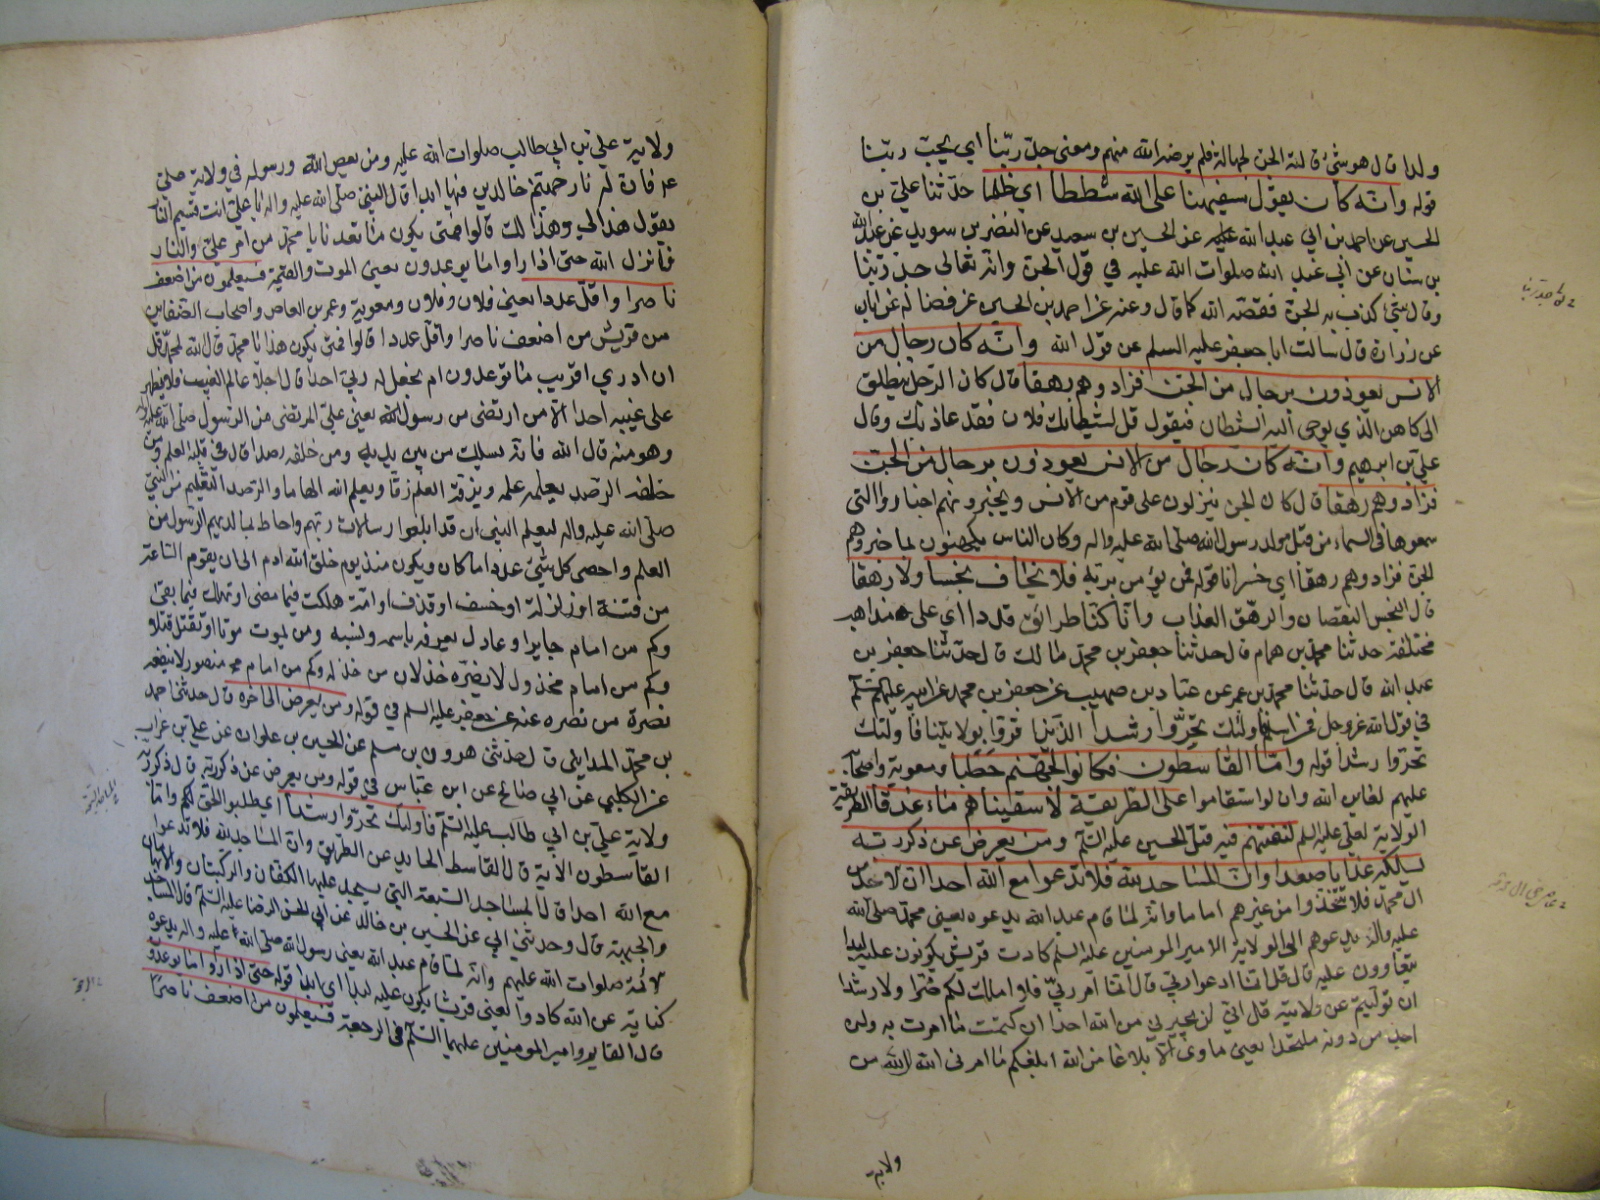 ولدا قال هو شئ قالته الجن بجهالة فلم يرضه الله منهم ومعنى جد ربنا اي بخت ربنا
قوله وانه كان يقول سفيهنا على الله شططا اي ظلما حدثنا علي بن
الحسين عن احمد بن ابي عبد الله عن الحسين بن سعيد عن النضر بن سويد عن عبد الله
بن سنان عن ابي عبد الله صلوات الله عليه في قول الجن وانه تعالى جد ربنا
وقال شئ كذب به الجن فقصه الله كما قال وعنه عن احمد بن الحسين عن فضالة عن ابان
عن زرارة قال سالت ابا جعفر عليه السلم عن قول الله وانه كان رجال من
الانس يعوذون برجال من الجن فزادوهم رهقا قال كان الرجل ينطلق
الى الكاهن الذي يوحى اليه الشيطان فيقول قل لشيطانك فلان فقد عاذ بك وقال
علي بن ابرهيم وانه كان رجال من الانس يعوذون برجال من الجن
فزادوهم رهقا قال كان الجن ينزلون على قوم من الانس ويخبرونهم اخبار والتي
سمعوها في السماء من قبل مولد رسول الله صلى الله عليه واله وكان الناس يكهنون بما خبروهم
الجن فزادوهم رهقا اي خسرانا قوله فمن يؤمن بربه فلا يخاف بخسا ولا رهقا
قال البخس النقصان والرهق العذاب وانا كنا طرائق قددا اي على مذاهب
مختلفة حدثنا محمد بن همام قال حدثنا جعفر بن محمد مالك قال حدثنا جعفر بن
عبد الله قال حدثنا محمد بن عمر عن عباد بن صهيب عن جعفر بن محمد عن ابيه عليهم السلم
في قول الله عز وجل فمن اسلم فاولئك تحروا رشدا الذين اقروا بولايتنا فاولئك
تحروا رشدا قوله واما القاسطون فكانوا لجهنم حطبا ومعوية واصحابه
عليهم لعاين الله وان لو استقاموا على الطريقة لاسقيناهم ماء غدقا الطريقة
الولاية لعلي عليه السلم لنفتنهم فيه قتل الحسين عليه السلم ومن يعرض عن ذكر ربه
يسلكه عذابا صعدا وان المساجد لله فلا تدعوا مع الله احدا ان لاخذ من
ال محمد فلا تتخذوا من غيرهم اماما وانه لما قام عبد الله يدعوه يعني محمدا صلى الله
عليه واله يدعوهم الى الولاية الامير المومنين عليه السلم كادت قريش يكونون عليه لبدا
يتعاوون عليه قال قل انما ادعوا ربي قال انما امر ربي فلا املك لكم ضرا ولا رشدا
ان توليتم عن ولايته قل اني لن يجيرني من الله احد ان كتمت ما امرت به ولن
اجد من دونه ملتحدا يعني ماوى الا بلاغا من الله ابلغكم ما امرني الله الله من
ولاية
ولاية علي بن ابي طالب صلوات الله عليه ومن يعص الله ورسوله في ولاية علي
فان له نار جهنم خالدين فيها ابدا قال النبي صلى الله عليه واله يا علي انت قسيم النار
يقول هذا لي وهذا لك قالوا فمتى يكون ما تعدنا يا محمد من امر علي والنار
فانزل الله حتى اذا راوا ما يوعدون يعني الموت والقيمة فسيعلمون من اضعف
ناصرا واقل عددا يعني فلان وفلان ومعوية وعمر بن العاص واصحاب الضغاين
من قريش من اضعف ناصرا واقل عددا قالوا فمتى يكون هذا يا محمد قال الله لمحمد قل
ان ادري اقريب ما توعدون ام يجعل له ربي احدا قال اجلا عالم الغيب فلا يظهر
على غيبه احدا الا من ارتضى من رسول الله يعني علي المرتضى من الرسول صلى الله عليه واله
وهو منه قال الله فانه يسلك من بين يديه ومن خلفه رصدا قال في قلبه العلم ومن
خلفه الرصد يعلمه علمه ويزقه العلم زقا ويعلم الله الهاما والرصد التعليم من النبي
صلى الله عليه واله ليعلم النبي ان قد ابلغوا رسالات ربهم واحاط بما لديهم الرسول من
العلم واحصى كل شئ عددا ما كان ويكون منذ يوم خلق الله ادم الى ان يقوم الساعة
من فتنة او زلزلة او خسف او قذف او امة هلكت فيما مضى او تهلك فيما بقى
وكم من امام جايرا وعادل يعرفه باسمه ونسبه ومن يموت موتا او يقتل قتلا
وكم من امام مخذول لا يضره خذلان من خذله وكم من امام منصور لا ينفعه
نصرة من نصره عنه عن جعفر عليه السلم في قوله ومن يعرض الى اخره قال حدثنا احمد
بن محمد المدايني قال حدثني هرون بن مسلم عن الحسين بن علوان عن علي بن غراب
عن الكلبي عن ابي صالح عن ابن عباس في قوله ومن يعرض عن ذكر ربه قال ذكر ربه
ولاية علي بن ابي طالب عليه السلم فاولئك تحروا رشدا اي طلبوا الحق لكم واما
القاسطون الاية قال القاسط الحايد عن الطريق وان المساجد لله فلا تدعوا
مع الله احدا قال المساجد السبعة التي يسجد عليها الكفان والركبتان والابهامان
والجبهة قال وحدثني ابي عن الحسين بن خالد عن ابي الحسن الرضا عليه السلم قال المساجد
لائمة صلوات الله عليهم وانه لما قام عبد الله يعني رسول الله صلى الله عليه واله يدعوه
كناية عن الله كادوا يعني قريشا يكون عليه لبدا اي ايدا قوله حتى اذا راوا ما يوعدون
قال القايم وامير المومنين عليهما السلم في الرجعة فسيعلمون من اضعف ناصرا